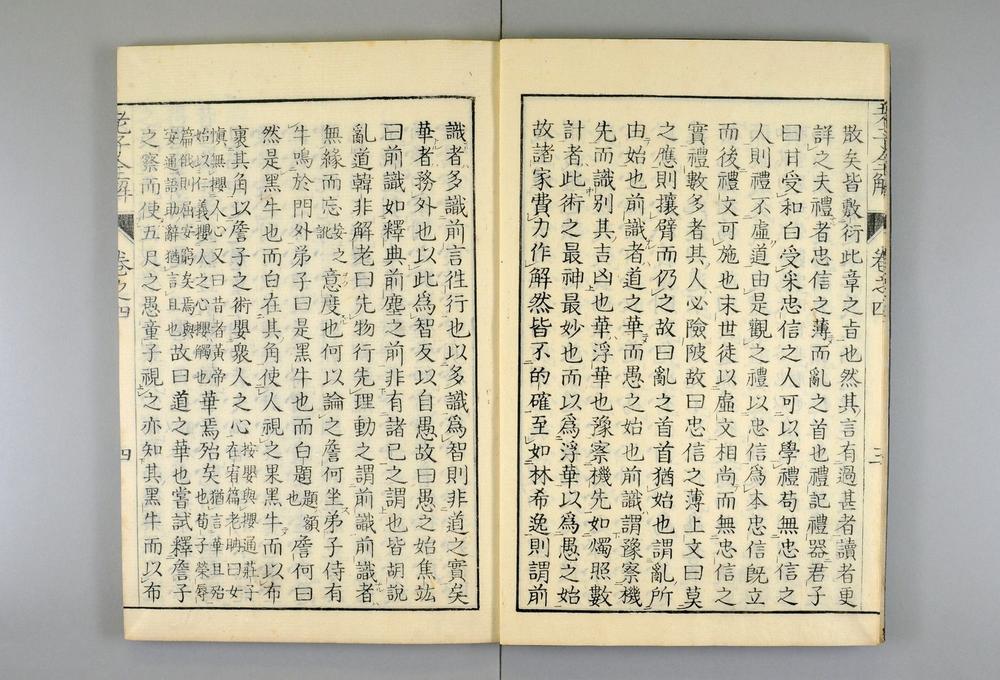 老子全解 卷之四 三
散矣皆敷衍此章之旨也然其言有過甚者讀者更
詳之夫禮者忠信之薄而亂之首也禮記禮器君子
曰甘受和白受采忠信之人可以學禮苟無忠信之
人則禮不虛道由是觀之禮以忠信爲本忠信旣立
而後禮文可施也末世徒以虛文相尚而無忠信之
實禮數多者其人必險陂故曰忠信之薄上文曰莫
之應則攘臂而仍之故曰亂之首首猶始也謂亂所
由始也前識者道之華而愚之始也前識謂豫察機
先而識別其吉凶也華浮華也豫察機先如燭照數
計者此術之最神最妙也而以爲浮華以爲愚之始
故諸家費力作解然皆不的確至如林希逸則謂前
識者多識前言往行也以多識爲智則非道之實矣
華者務外也以此爲智反以自愚故曰愚之始焦竑
曰前識如釋典前塵之前非有諸已之謂也皆胡說
亂道韓非解老曰先物行先理動之謂前識前識者
無緣而忘妄之訛意度也何以論之詹何坐弟子侍有
牛鳴於門外弟子曰是黑牛也而白題題額也詹何曰
然是黑牛也而白在其角使人視之果黑牛而以布
裹其角以詹子之術嬰衆人之心按嬰與攖通莊子在宥篇老聃曰女
愼無攖人心又曰昔者黃帝始以仁義攖人之心攖觸也華焉殆矣猶言華且殆也荀子榮辱
篇俄則屈安窮矣焉與安通語助辭猶言且也故曰道之華也嘗試釋詹子
之察而使五尺之愚童子視之亦知其黑牛而以布
老子全解 卷之四 四